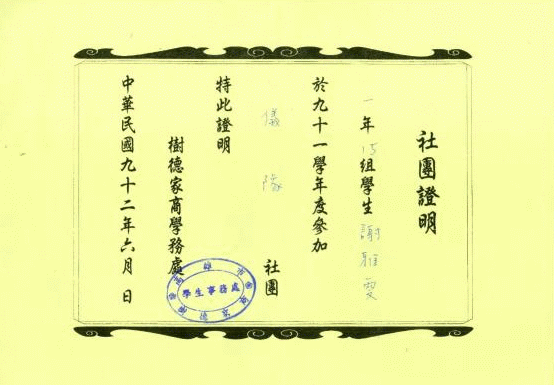 社團證明
一年15組學生謝雅雯
於九十一學年度參加
儀隊社團
特此證明
樹德家商學務處
中華民國九十二年六月 日
學生事務處